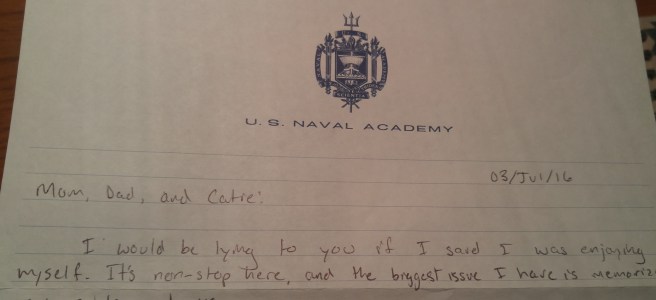 U.S. NAVAL ACADEMY
03/Jul/16
Mom, Dad, and Catie:
I would be lying to you if I said I was enjoying
myself. It's non-stop here, and the biggest issue I have is memoriz